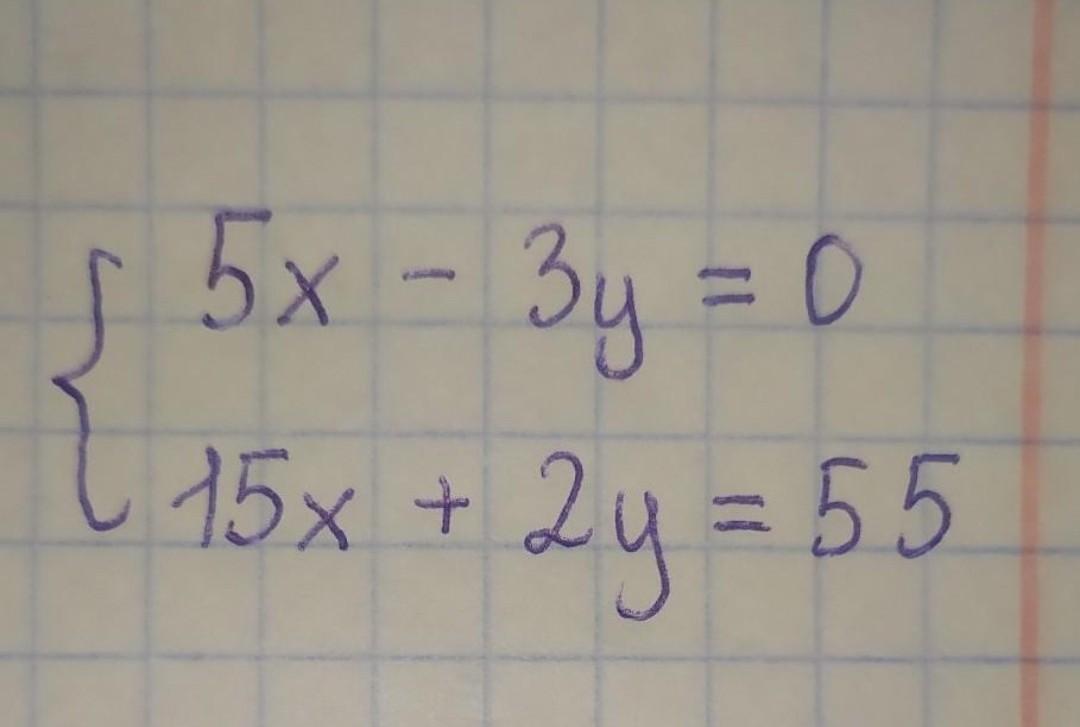 5x - 3y = 0
15x + 2y = 55